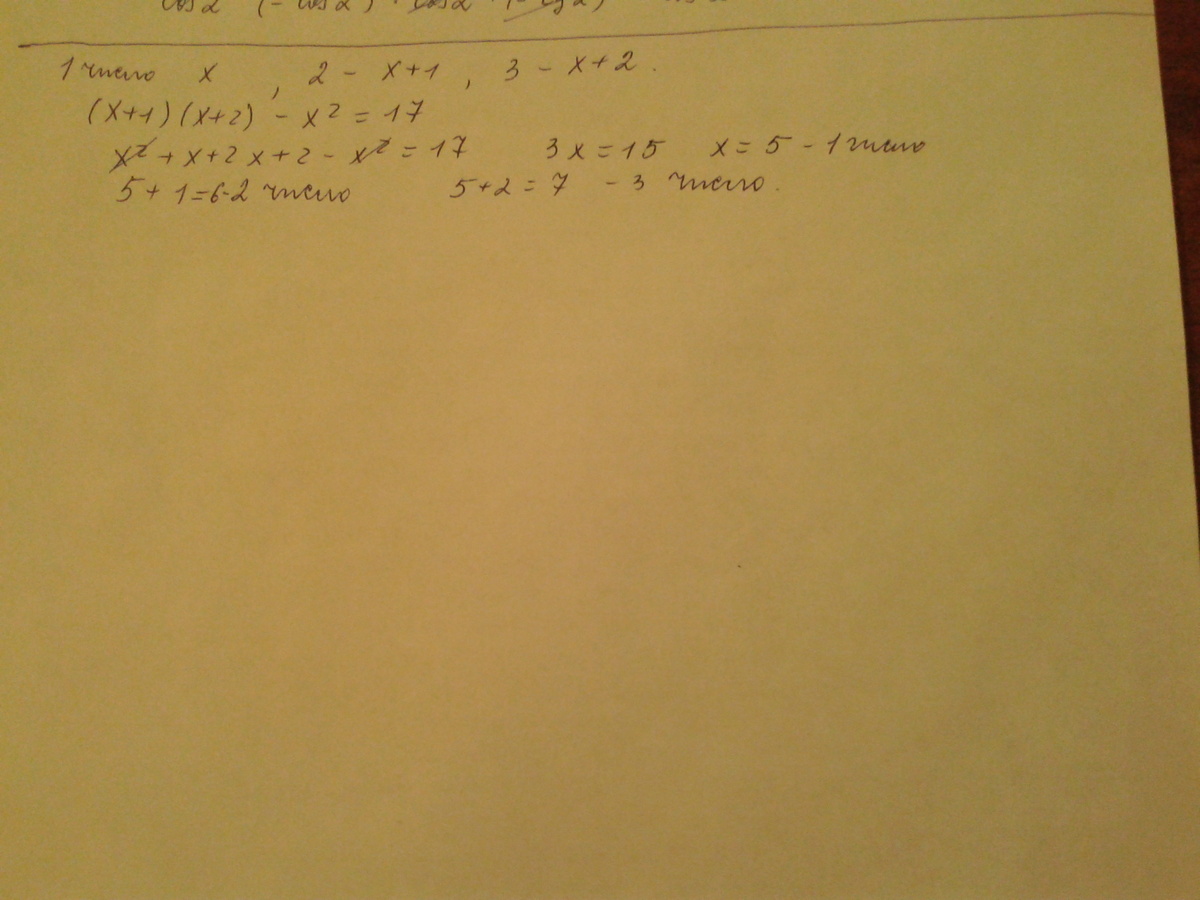 1 число x , 2 - x+1 , 3 - x+2 .
(x+1)(x+2) - x² = 17
x² + x+2x+2 - x² = 17 3x=15 x= 5 - 1 число
5+1=6-2 число 5+2=7 - 3 число.